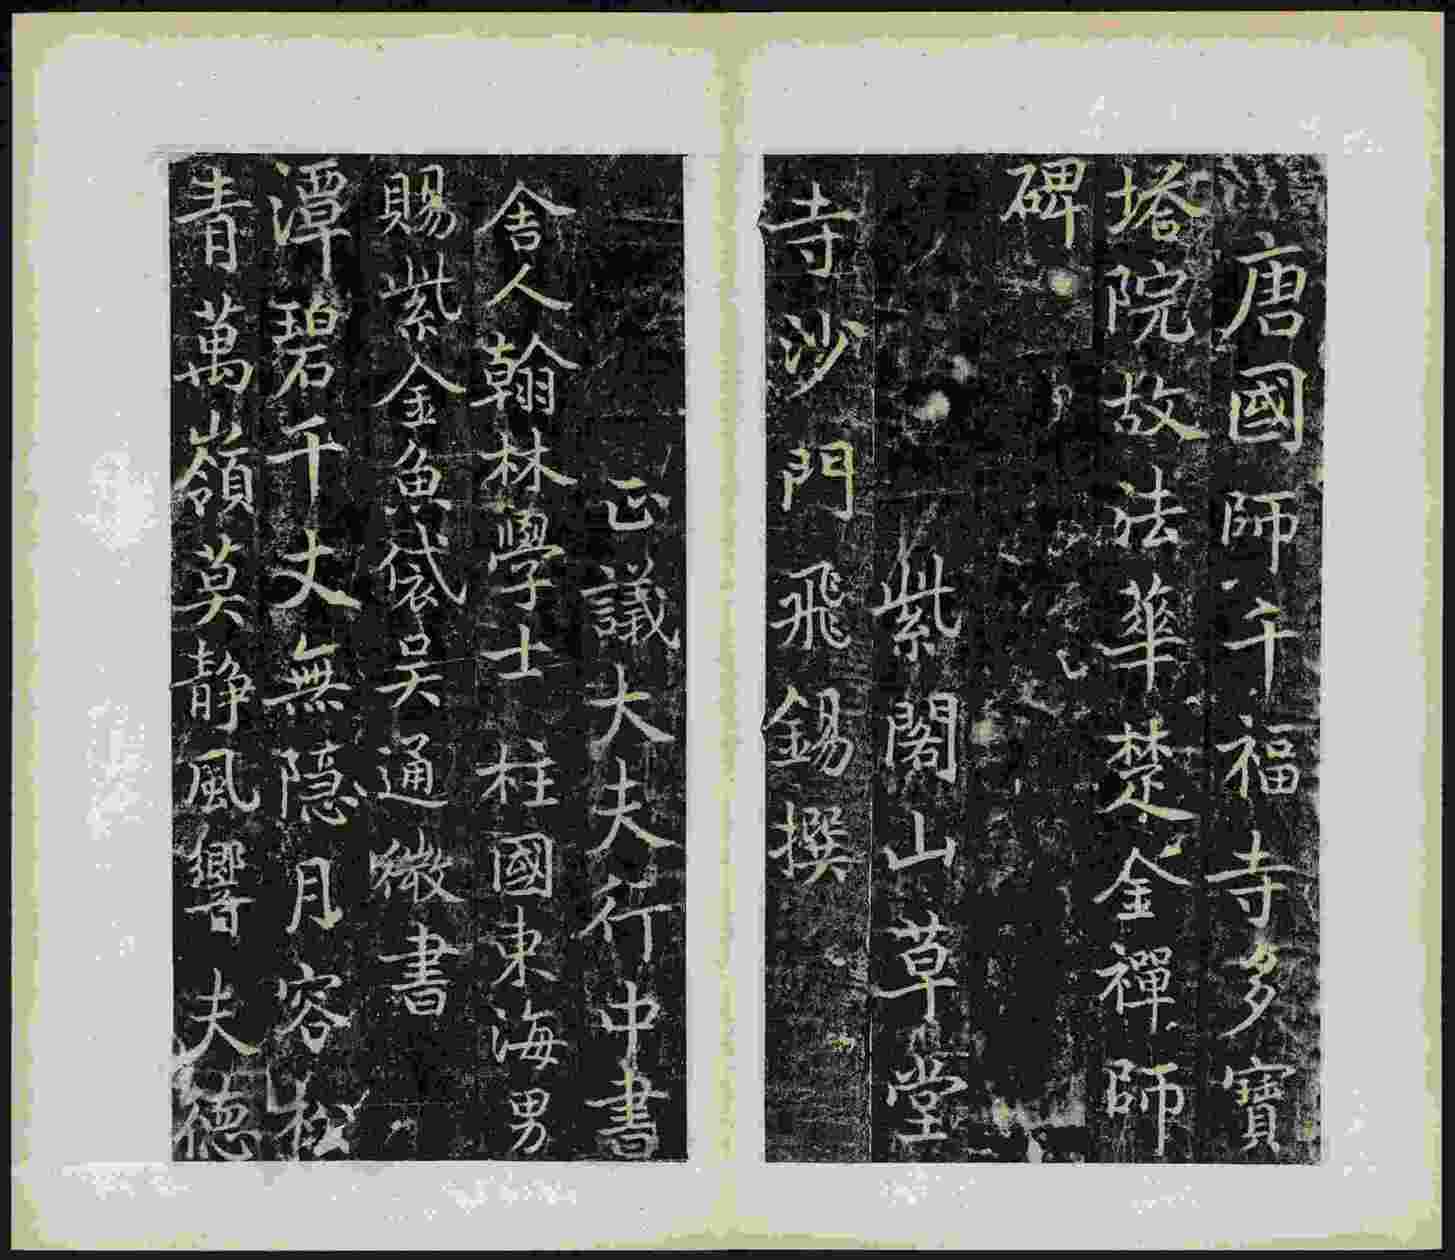 唐國師千福寺多寶
塔院故法華楚金禪師
碑
紫閣山草堂
寺沙門飛錫撰
正議大夫行中書
舍人翰林學士柱國東海男
賜紫金魚袋吳通微書
潭碧千丈無隱月容松
青萬嶺莫靜風響夫德